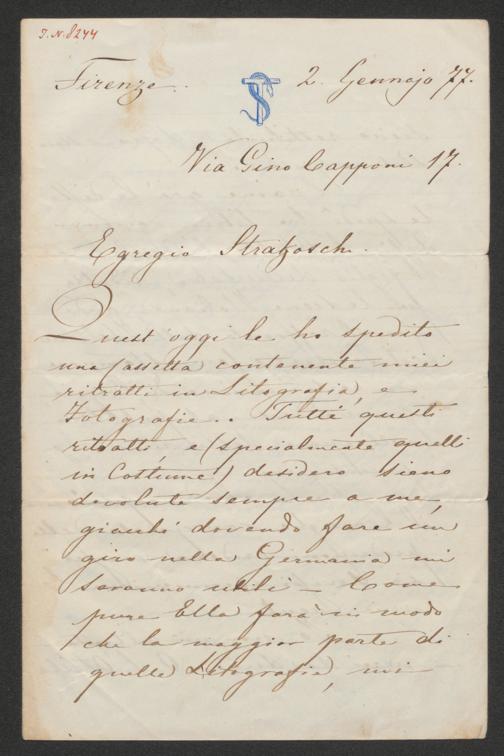 I.N. 8244
Firenze.. 2. Gennajo 77.
Via Gino Capponi 17.
Egregio Strakosch.
Quest'oggi le ho spedito
una Cassetta contenente miei
ritratti in Litografia, e
Fotografie.. Tutti questi
ritratti, e (specialmente quelli
in Costume) desidero sieno
devolute sempre a me,
giacché dovendo fare un
giro nella Germania mi
saranno utili – Come
pure Ella farà in modo
che la maggior parte di
quelle Litografie, mi